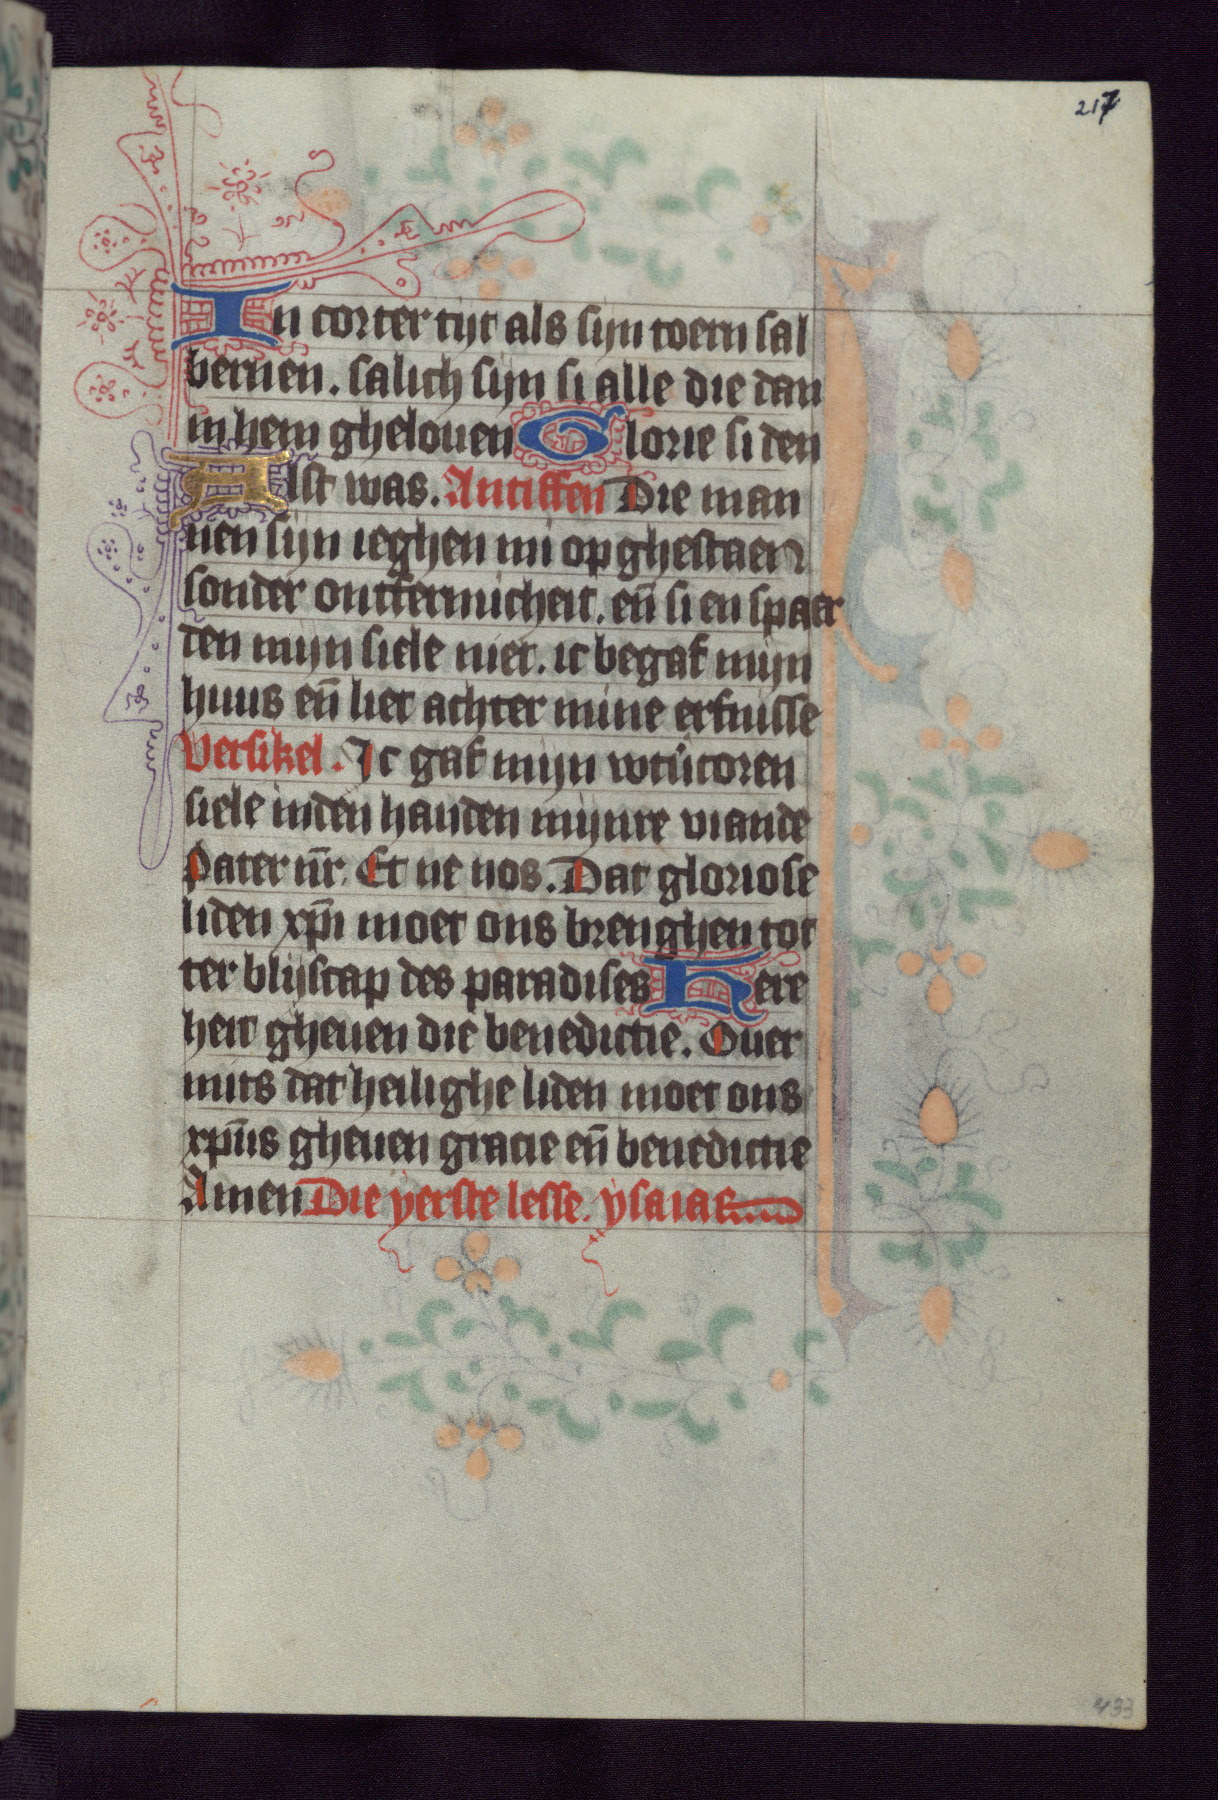 217
In corter tijt als sijn toern sal
bernen. salich sijn si alle die dan
in hem ghelouen Glorie si den
Alst was. Antiffen Die man
nen sijn ieghen mi op ghestaen
sonder ontfermicheit. en̄ si en spaer
den mijn siele niet. ic begaf mijn
huus en̄ liet achter mine erfnisse
Versikel. Ic gaf mijn wtūcoren
siele inden handen mijnre viande
Pater nr̄. Et ne nos. Dat gloriose
liden xp̄i moet ons brenghen tot
ter blijscap des paradises Here
heit gheuen die benedictie. Ouer
mits dat heilighe liden moet ons
xp̄us gheuen gracie en̄ benedictie
Amen Die yerste lesse. ysaias
433